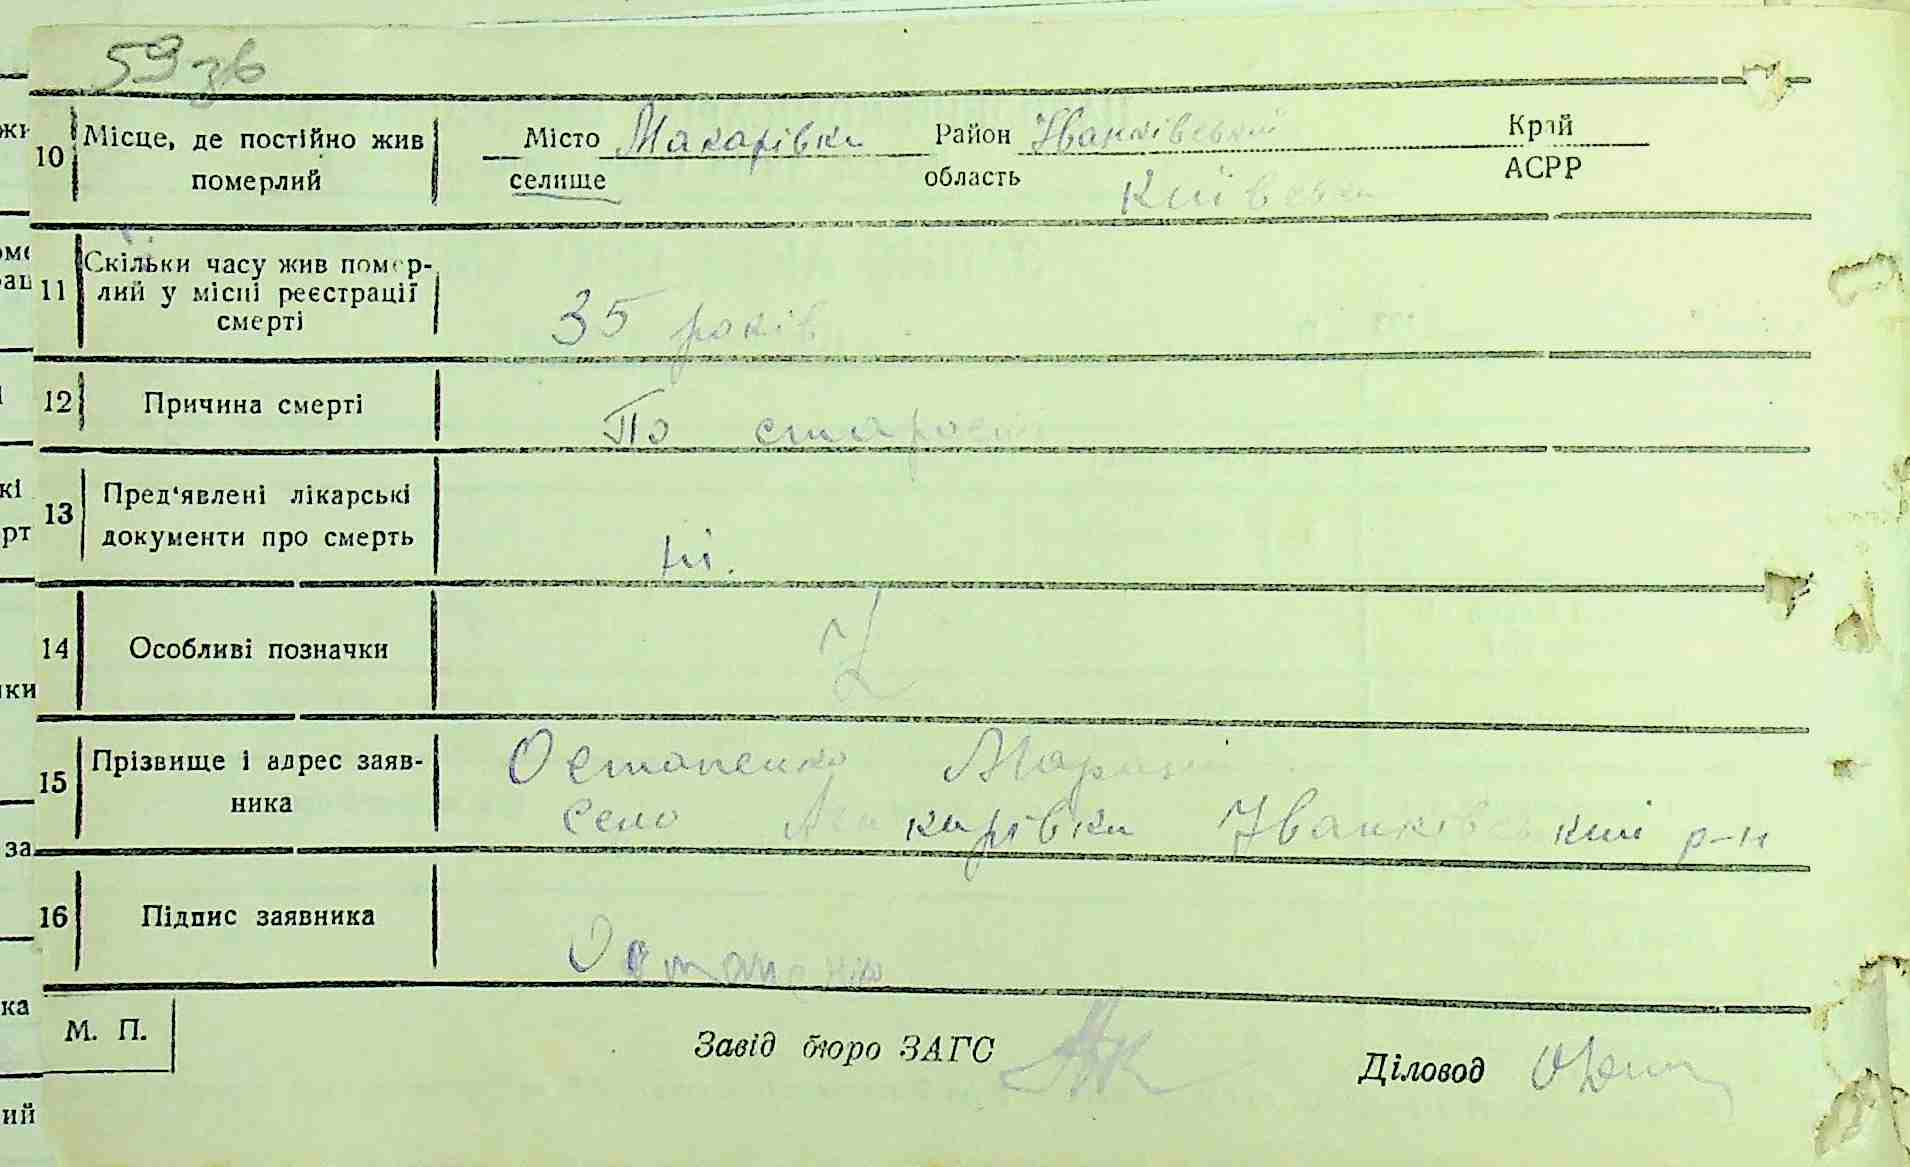 59 зв
10 Місце, де постійно жив померлий
Місто Макарівка Район Іванківський Край
селище область Київська АСРР
11 Скільки часу жив помер-
лий у місці реєстрації
смерті
35 років
12 Причина смерті По старості
13 Пред'явлені лікарські
документи про смерть
ні.
14 Особливі позначки Z
15 Прізвище і адрес заяв-
ника
Остапенко
село Макарівка Іванківський р-н
16 Підпис заявника
Остапенко
М. П.
Завід бюро ЗАГС
Діловод